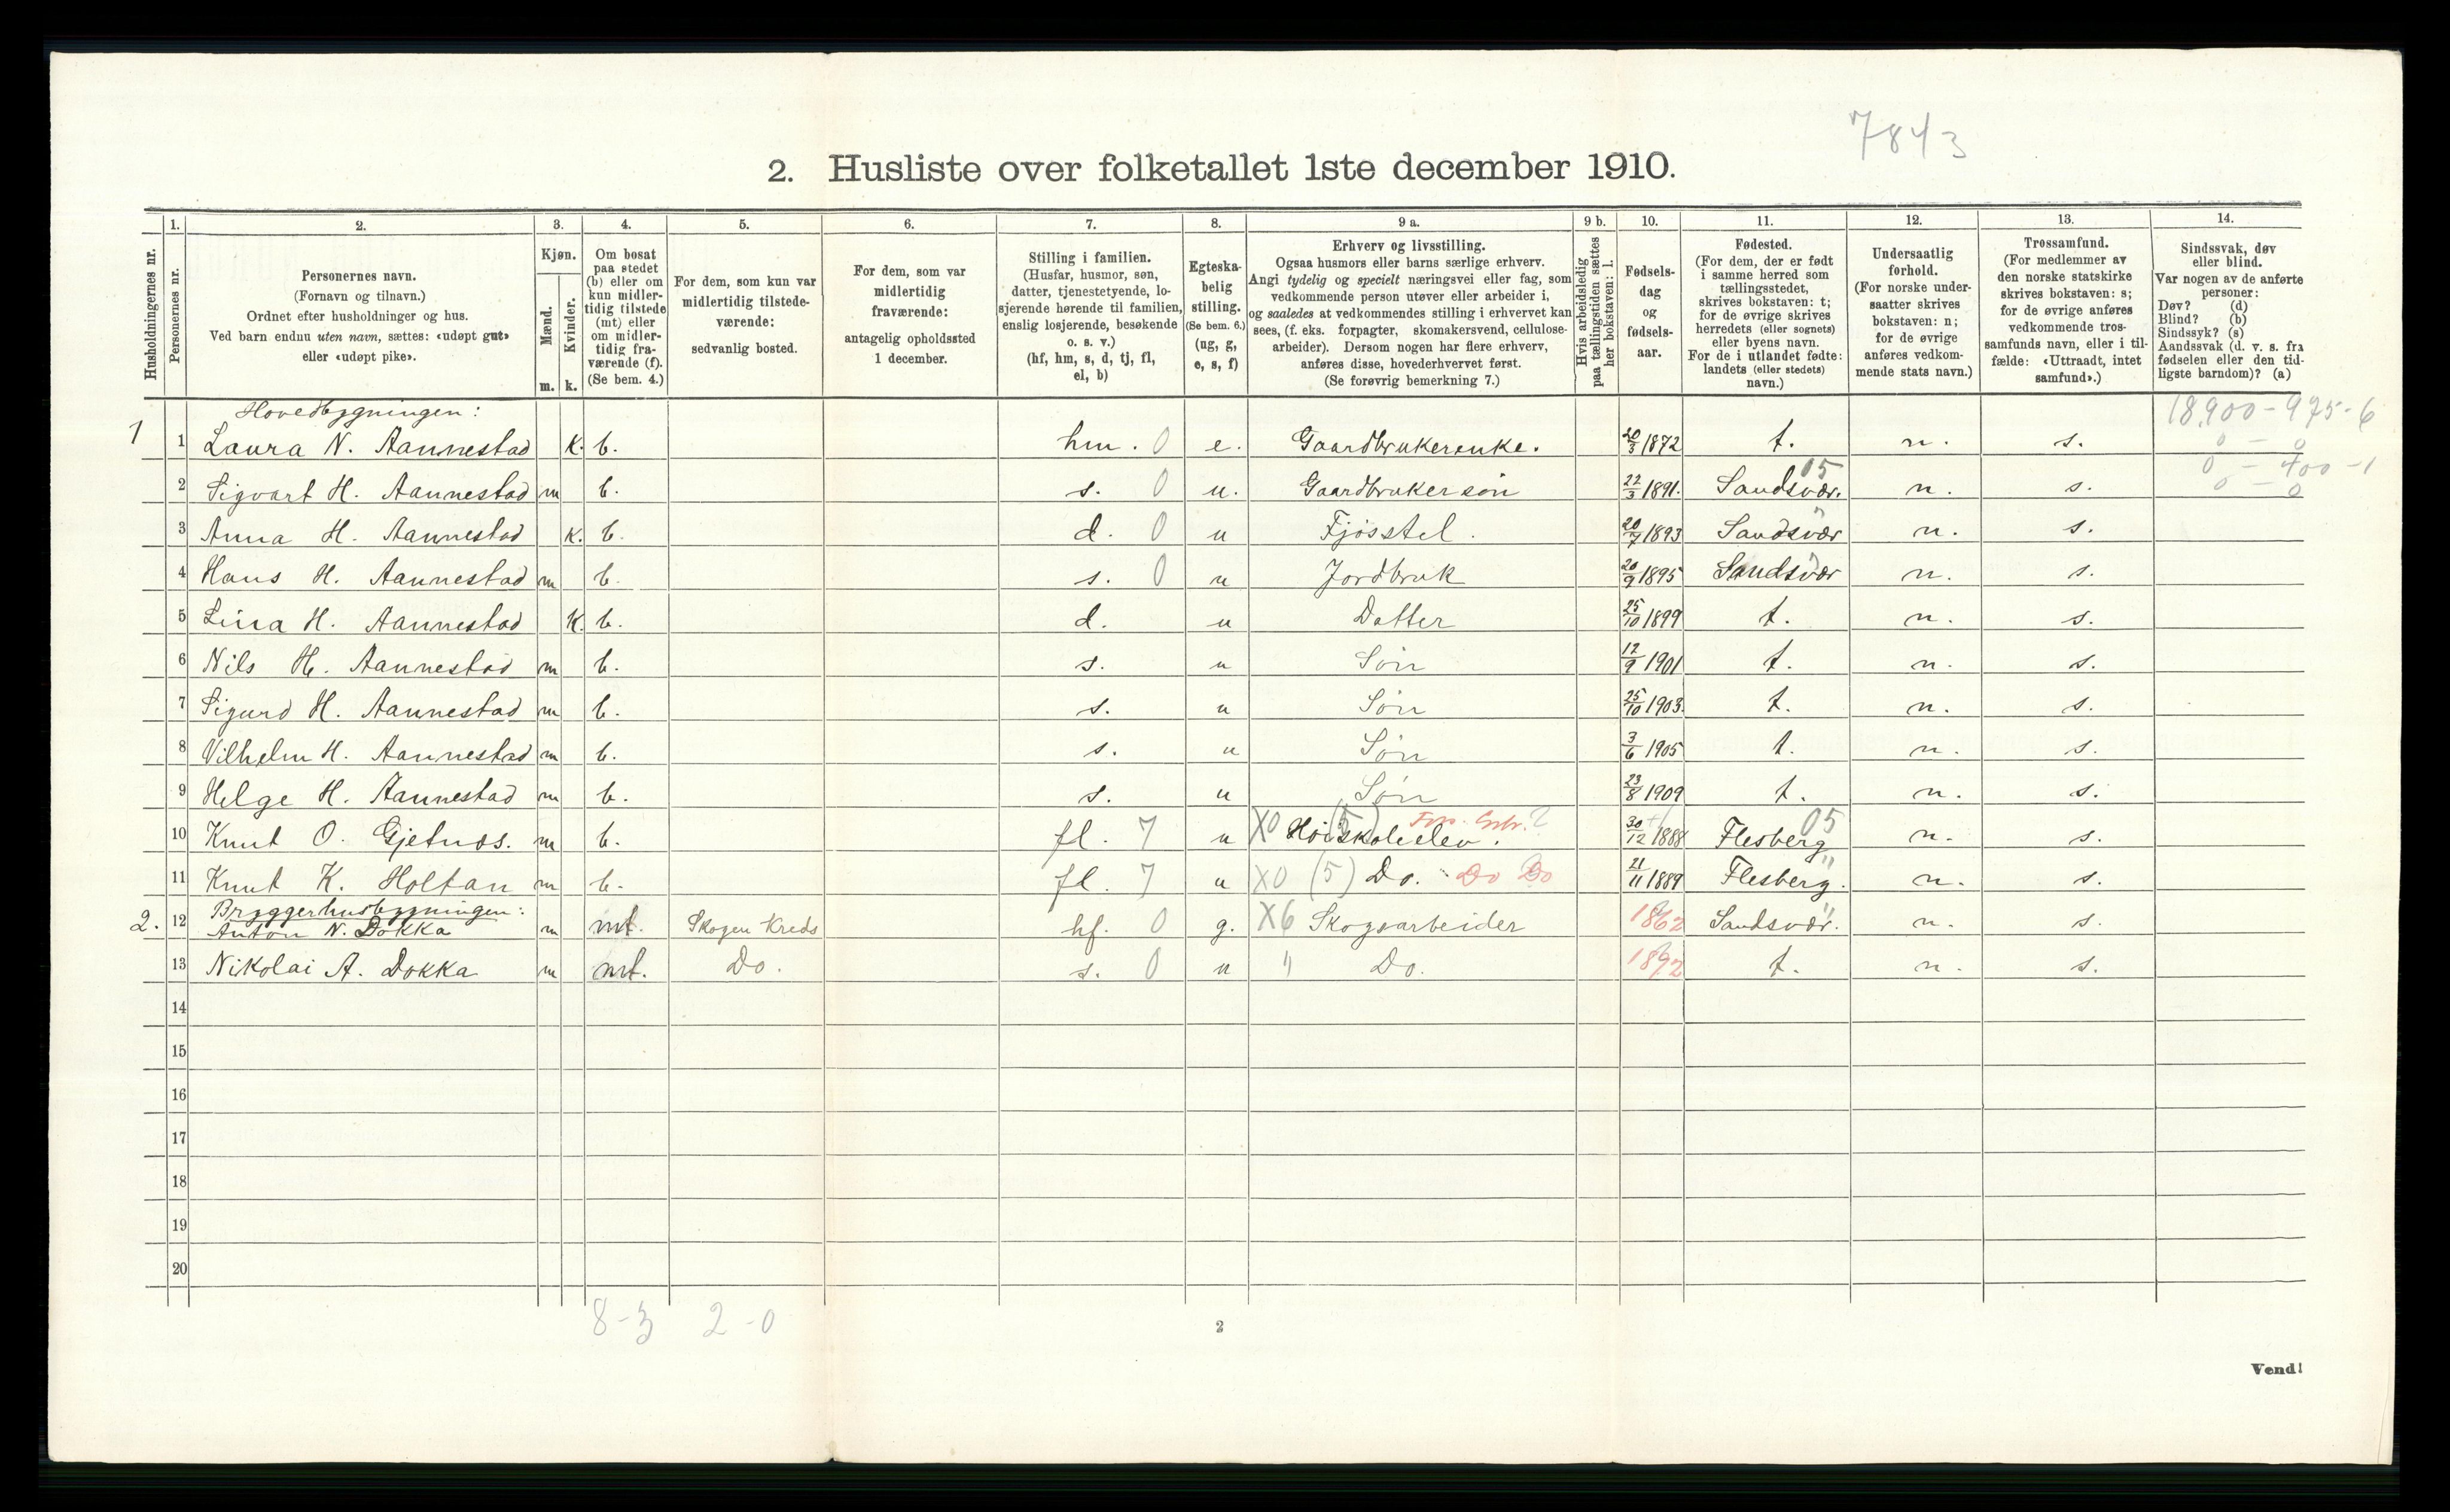 7843
2. Husliste over folketallet 1ste december 1910.
Husholdningernes nr.
1.
Personernes nr.
2.
Personernes navn.
(Fornavn og tilnavn.)
Ordnet efter husholdninger og hus.
Ved barn endnu uten navn, sættes: «udøpt gut»
eller «udøpt pike».
3.
Kjøn.
Mænd.
Kvinder.
m. k.
4.
Om bosat
paa stedet
(b) eller om
kun midler-
tidig tilstede
(mt) eller
om midler-
tidig fra-
værende (f).
(Se bem. 4.)
5.
For dem, som kun var
midlertidig tilstede-
værende:
sedvanlig bosted.
6.
For dem, som var
midlertidig
fraværende:
antagelig opholdssted
1 december.
7.
Stilling i familien.
(Husfar, husmor, søn,
datter, tjenestetyende, lo-
sjerende hørende til familien,
enslig losjerende, besøkende
o. s. v.)
(hf, hm, s, d, tj, fl,
el, b)
8.
Egteska-
belig
stilling.
(Se bem. 6.)
(ug, g,
e, s, f)
9 a.
Erhverv og livsstilling.
Ogsaa husmors eller barns særlige erhverv.
Angi tydelig og specielt næringsvei eller fag, som
vedkommende person utøver eller arbeider i,
og saaledes at vedkommendes stilling i erhvervet kan
sees, (f. eks. forpagter, skomakersvend, cellulose-
arbeider). Dersom nogen har flere erhverv,
anføres disse, hovederhvervet først.
(Se forøvrig bemerkning 7.)
9 b.
Hvis arbeidsledig
paa tællingstiden sættes
her bokstaven: l.
10.
Fødsels-
dag
og
fødsels-
aar.
11.
Fødested.
(For dem, der er født
i samme herred som
tællingsstedet,
skrives bokstaven: t;
for de øvrige skrives
herredets (eller sognets)
eller byens navn.
For de i utlandet fødte:
landets (eller stedets)
navn.)
12.
Undersaatlig
forhold.
(For norske under-
saatter skrives
bokstaven: n;
for de øvrige
anføres vedkom-
mende stats navn.)
13.
Trossamfund.
(For medlemmer av
den norske statskirke
skrives bokstaven: s;
for de øvrige anføres
vedkommende tros-
samfunds navn, eller i til-
fælde: «Uttraadt, intet
samfund».)
14.
Sindssvak, døv
eller blind.
Var nogen av de anførte
personer:
Døv? (d)
Blind? (b)
Sindssyk? (s)
Aandssvak (d. v. s. fra
fødselen eller den tid-
ligste barndom)? (a)
Hovedbygningen: 18,900 - 975 - 6
1 1 Laura N. Aannestad K. b. hm. 0 e. Gaardbrukerenke. 20/3 1872 t. n. s. 0 - 0
05 0 - 400 - 1
2 Sigvart H. Aannestad m b. s. 0 u. Gaardbrukersøn 22/3 1891. Sandsvær. n. s. 0 - 0
3 Anna H. Aannestad K. b. d. 0 u Fjøsstel. 20/7 1893 Sandsvær " n. s.
4 Hans H. Aannestad m b. s. 0 u Jordbruk 20/9 1895 Sandsvær " n. s.
5 Lina H. Aannestad K. b. d. u Datter 25/10 1899 t. n. s.
6 Nils H. Aannestad m b. s. u Søn 12/9 1901 t. n. s.
7 Sigurd H. Aannestad m b. s. u Søn 25/10 1903. t. n. s.
8 Vilhelm H. Aannestad m b. s. u Søn 3/6 1905 t. n. s.
9 Helge H. Aannestad m b. s. u Søn 23/8 1909 t. n. s.
10 Knut O. Gjetnæs. m b. fl. 7 u X0 (5) Høiskoleelev. ? 30/12 1888 Flesberg 05 n. s.
11 Knut K. Holtan m b. fl. 7 u X0 (5) Do. Do Do 21/11 1889 Flesberg. " n. s.
Bryggerhusbygningen:
2. 12 Anton N. Dokka m mt. Skogen Kreds hf. 0 g. X6 Skogsarbeider 1862 Sandsvær. " n. s.
13 Nikolai A. Dokka m mt. Do. s. 0 u " Do. 1892 t. n. s.
14
15
16
17
18
19
20
8-3 2-0
2
Vend!